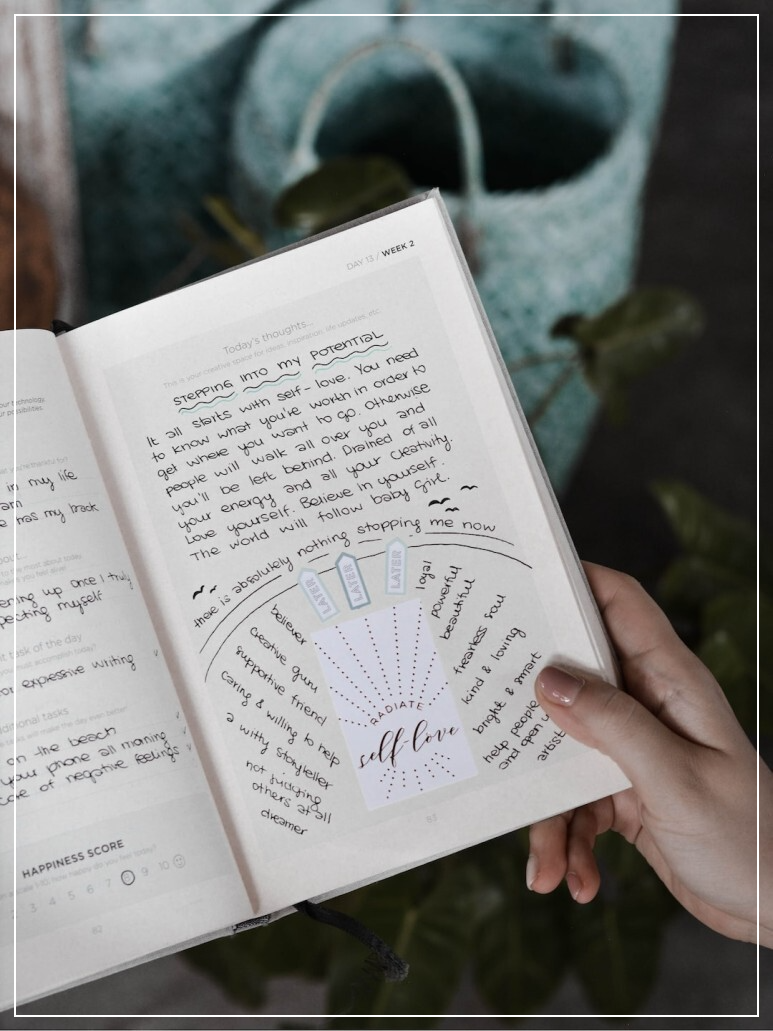 our technology
our possibilities.
what you're thankful for?
in my life
am
e has my track
bout...
to the most about today
you feel alive!
ening up once I truly
pecting myself
t task of the day
you must accomplish today?
or expressive writing
ditional tasks
tasks will make the day even better!
on the beach
your phone all morning
core of negative feelings
HAPPINESS SCORE
how happy do you feel today?
3 4 5 6 7 8 9 10
62
DAY 13 / WEEK 2
Today's thoughts...
This is your creative space for ideas, inspiration, life updates, etc.
STEPPING INTO MY POTENTIAL
It all starts with self-love. You need
to know what you're worth in order to
get where you want to go. Otherwise
people will walk all over you and
you'll be left behind. Drained of all
your energy and all your creativity.
Love yourself. Believe in yourself.
The world will follow baby girl.
there is absolutely nothing stopping me now
LATER
LATER
LATER
believer
creative guru
supportive friend
caring & willing to help
a witty storyteller
not judging
others at all
dreamer
RADIATE
self-love
loyal
powerful
beautiful
fearless soul
kind & loving
bright & smart
help people
and open
artist
63